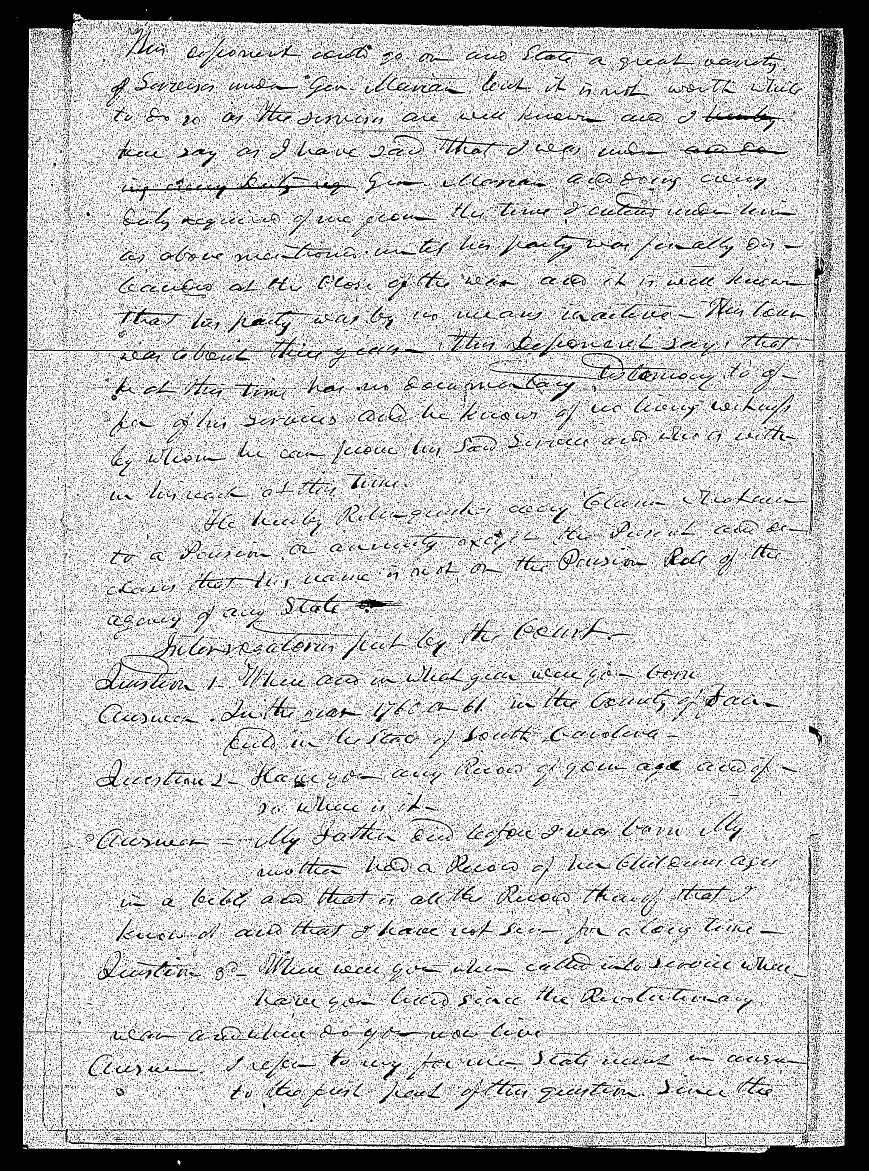 This deponent could go on and State a great variety
of Services under Gen. Marian but it is not worth while
to do so as the services are well known and I hereby
here say as I have said that I was under and do
ing every duty req Gen. Marian and doing every
duty required of me from the time I entered under him
as above mentioned until his party was finally dis-
banded at the Close of the war and it is well known
that his party was by no means inactive - This tour
was about three years - This Deponent says that
he at this time has no documentary testimony to of-
fer of his services and he knows of no living witness
by whom he can prove his said Service and who is with-
in his reach at this time.
He hereby Relinquishes every Claim whatever
to a Pension or annuity except the Present and de-
clares that his name is not on the Pension Roll of the
agency of any State
Interrogatories put by the Court. -
Question 1- Where and in what year were you born
Answer. In the year 1760 or 61 in the County of Fair-
field in the State of South Carolina -
Question 2- Have you any Record of your age and if -
so where is it -
Answer - My Father died before I was born My
mother had a Record of her Childrens ages
in a bible and that is all the Record thereof that I
know of and that I have not seen for a long time -
Question 3d- Where were you when called into service where
have you lived since the Revolutionary
war and where do you now live
Answer. I refer to my former Statement in answer
to the first part of this question. Since the